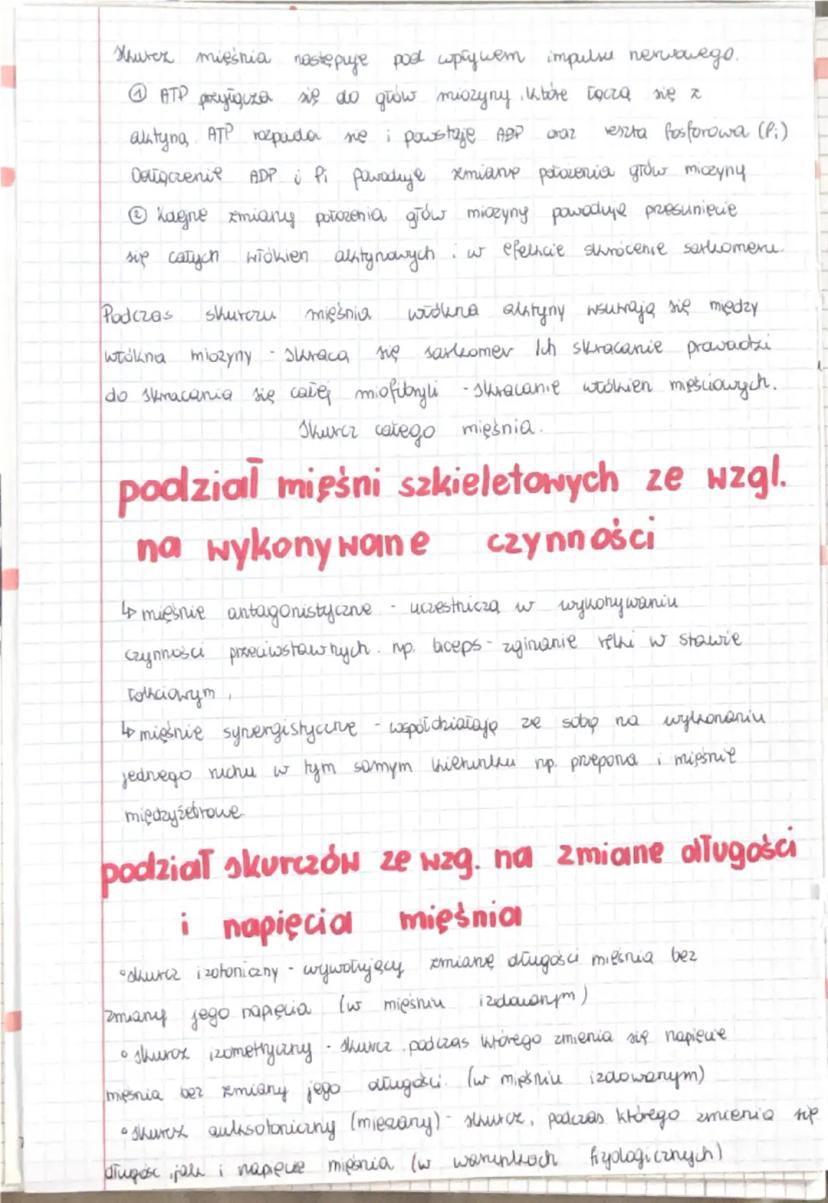 Skurcz mięśnia następuje pod wpływem impulsu nerwowego.
① ATP przyłącza się do głów miozyny, które łączą się z
aktyną. ATP rozpada się i powstaje ADP oraz reszta fosforowa (Pi)
Odłączenie ADP i Pi powoduje zmianę położenia głów miozyny
② Kolejne zmiany położenia głów miozyny powoduję przesunięcie
się całych włókien aktynowych i w efekcie skrócenie sarkomeru.
Podczas skurczu mięśnia włókna aktyny wsuwają się między
włókna miozyny - skraca się sarkomer Ich skracanie prowadzi
do skracania się całej miofibryli - skracanie włókien mięśniowych.
Skurcz całego mięśnia.
podział mięśni szkieletowych ze wzgl.
na wykonywane czynności
↳ mięśnie antagonistyczne - uczestniczą w wykonywaniu
czynności przeciwstawnych. np. biceps - zginanie ręki w stawie
łokciowym,
↳ mięśnie synergistyczne - współdziałają ze sobą na wykonaniu
jednego ruchu w tym samym kierunku np. przepona i mięśnie
międzyżebrowe
podział skurczów ze wzg. na zmianę długości
i napięcia mięśnia
°skurcz izotoniczny - wywołujący zmianę długości mięśnia bez
zmiany jego napięcia (w mięśniu izolowanym)
° skurcz izometryczny - skurcz, podczas którego zmienia się napięcie
mięśnia bez zmiany jego długości. (w mięśniu izolowanym)
°skurcz auksotoniczny (mieszany) - skurcz, podczas którego zmienia się
długość, jak i napięcie mięśnia (w warunkach fizjologicznych)